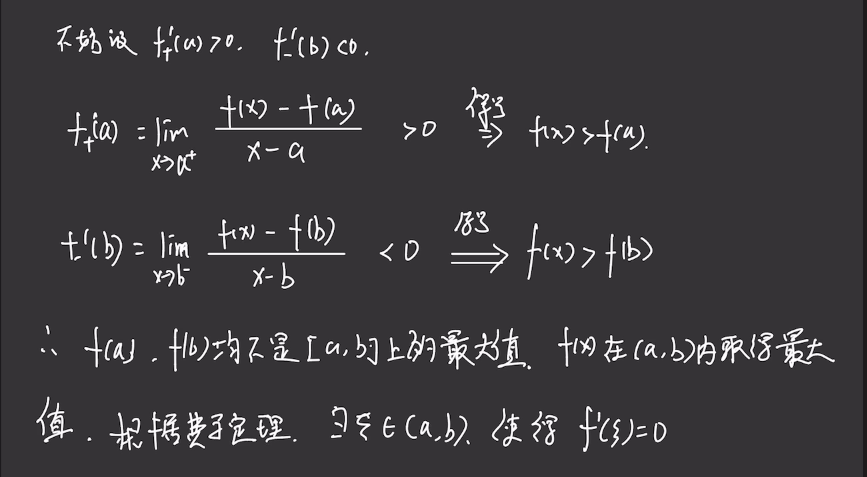 不妨设 f₊'(a)>0. f₋'(b)<0.
f₊'(a) = lim_{x→a⁺} \frac{f(x)-f(a)}{x-a} >0 \overset{保号}{⇒} f(x)>f(a).
f₋'(b) = lim_{x→b⁻} \frac{f(x)-f(b)}{x-b} <0 \overset{保号}{⟹} f(x)>f(b)
∴ f(a), f(b)均不是[a,b]上的最大值. f(x)在(a,b)内取得最大
值. 根据费马定理. ∃ξ∈(a,b), 使得 f'(ξ)=0